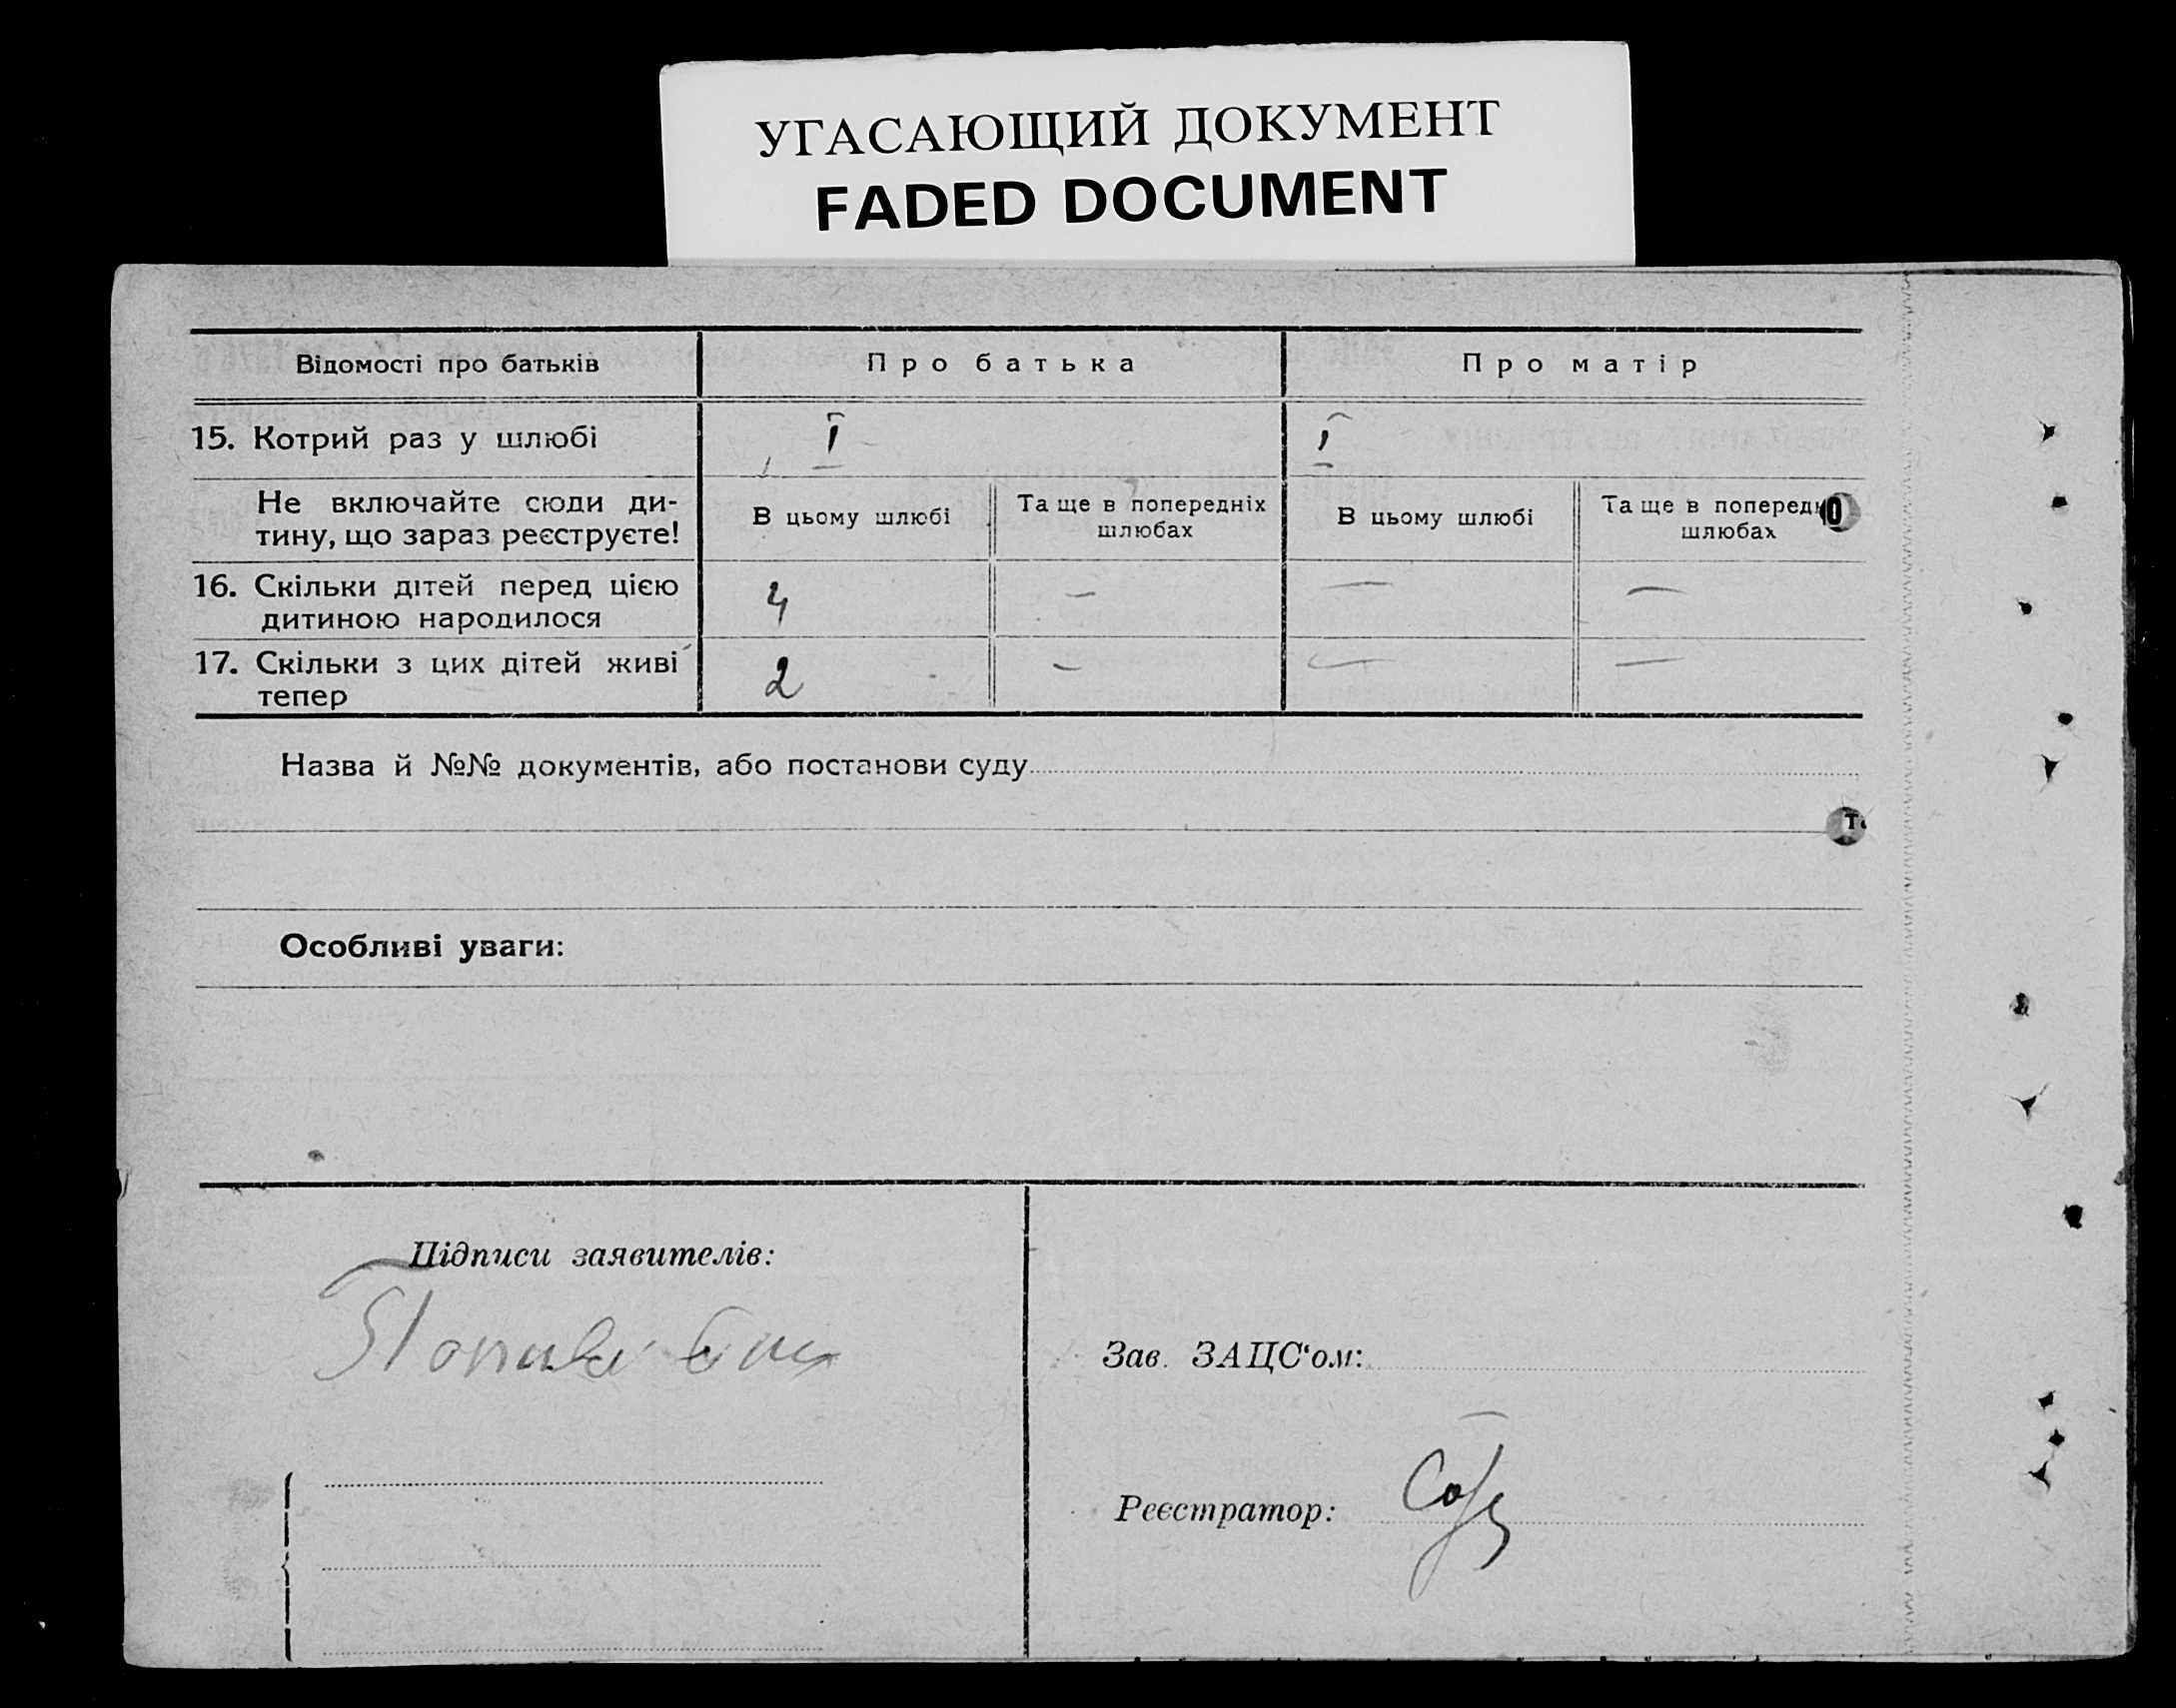 УГАСАЮЩИЙ ДОКУМЕНТ
FADED DOCUMENT
Відомості про батьків Про батька Про матір
15. Котрий раз у шлюбі I I
Не включайте сюди ди-
тину, що зараз реєструєте!
В цьому шлюбі Та ще в попередніх
шлюбах
В цьому шлюбі Та ще в поперед
шлюбах
16. Скільки дітей перед цією
дитиною народилося
4 — — —
17. Скільки з цих дітей живі
тепер
2 — — —
Назва й №№ документів, або постанови суду
Особливі уваги:
Підписи заявителів:
Зав. ЗАЦС‘ом:
Реєстратор: